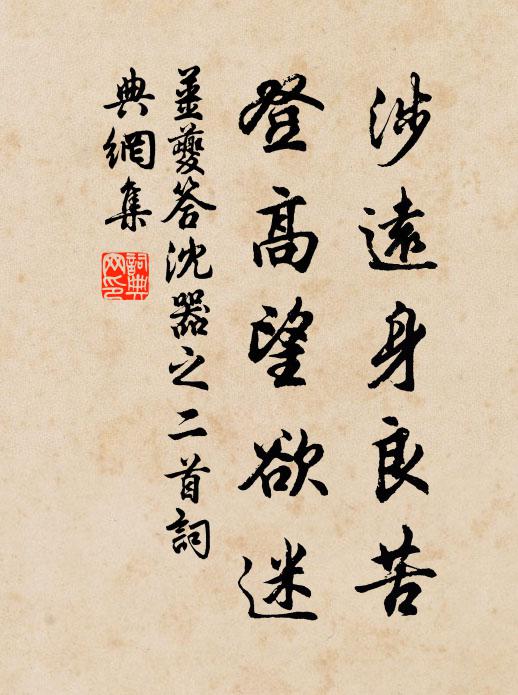 涉遠身良苦
登高望欲迷
姜夔答沈器之二首詞
典網集
詞典
网印